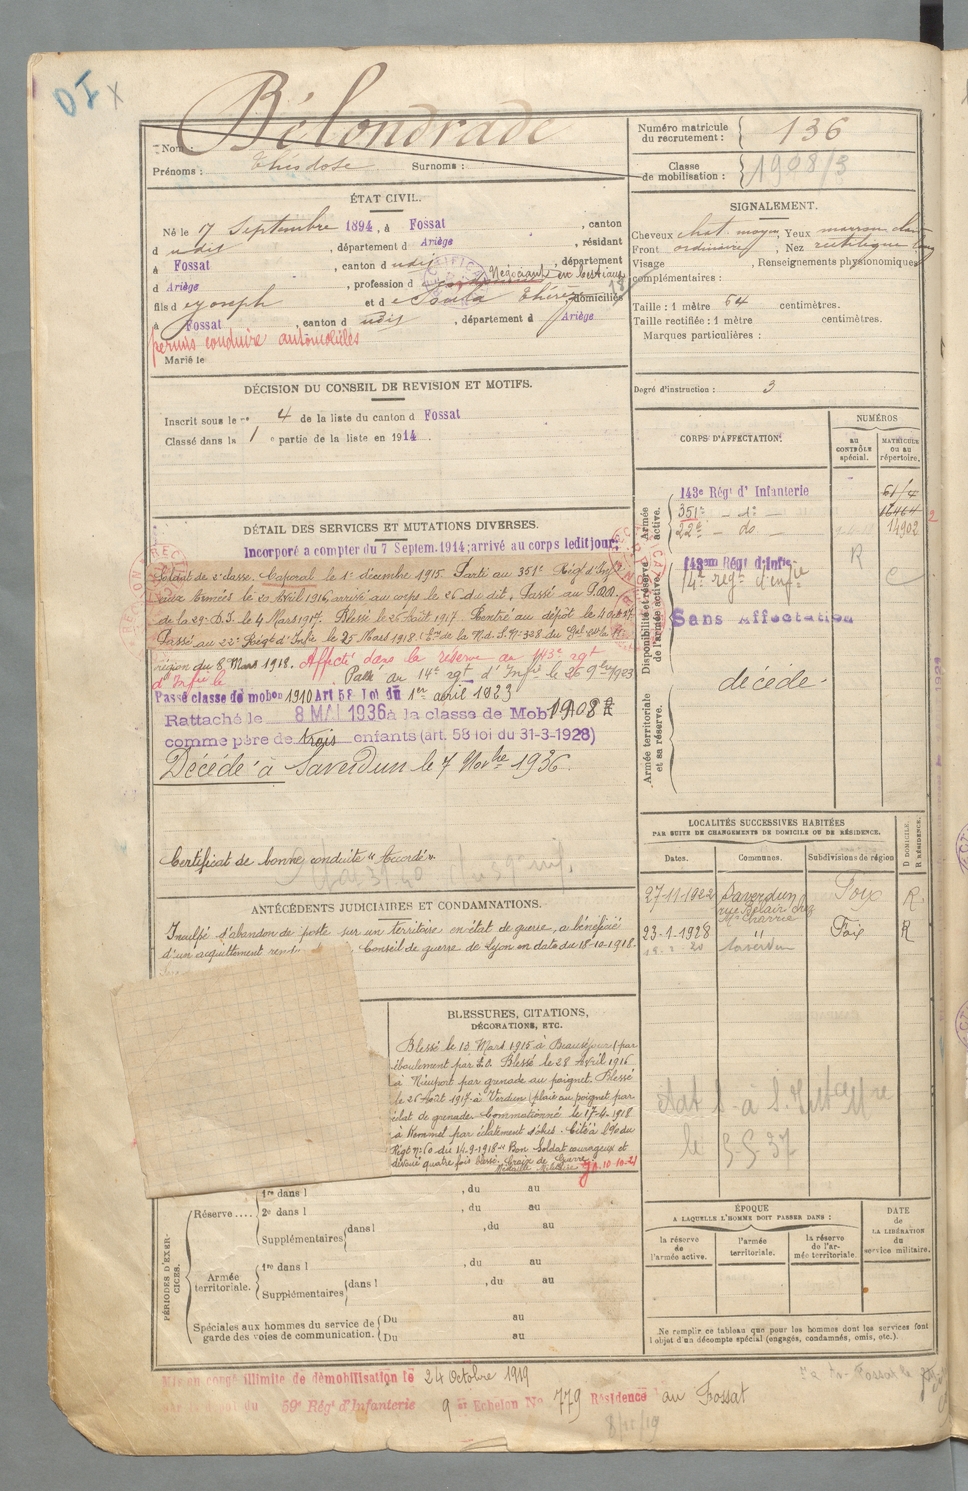 Bélondrade
Nom :
Prénoms : Théodose Surnoms :
Numéro matricule du recrutement : 136
Classe de mobilisation : 1908/3
ÉTAT CIVIL.
Né le 7 Septembre 1894, à Fossat, canton
d udit, département d Ariège, résidant
à Fossat, canton d udit, département
d Ariège, profession d Négociant en bestiaux
fils d e Joseph et d e Soula Thérèse, domiciliés
à Fossat, canton d udit, département d Ariège
permis conduire automobiles
Marié le
SIGNALEMENT.
Cheveux chat. moyen, Yeux marron clair
Front ordinaire, Nez rectiligne long
Visage , Renseignements physionomiques
complémentaires :
Taille : 1 mètre 64 centimètres.
Taille rectifiée : 1 mètre centimètres.
Marques particulières :
Degré d'instruction : 3
DÉCISION DU CONSEIL DE REVISION ET MOTIFS.
Inscrit sous le n° 4 de la liste du canton d Fossat
Classé dans la 1 e partie de la liste en 1914
CORPS D'AFFECTATION.
NUMÉROS
au CONTRÔLE spécial.
MATRICULE ou au répertoire.
Armée active.
143e Régt d'Infanterie
351e - do -
22e - do - 14902
Disponibilité et réserve de l'armée active.
143em Regt d'Infie R
14e regt d'infie C
Sans Affectation
Armée territoriale et sa réserve.
décédé
DÉTAIL DES SERVICES ET MUTATIONS DIVERSES.
Incorporé a compter du 7 Septem. 1914; arrivé au corps ledit jour.
Soldat de 2e classe. Caporal le 1er décembre 1915. Parti au 351e Régt d'Infie
aux Armées le 20 Avril 1916, arrivé au corps le 26 du dit. Passé au
de la 29e D.I. le 4 Mars 1917. Blessé le 26 Août 1917. Rentré au dépôt le
Passé au 22e Régt d'Infie le 25 Mars 1918.
région du 8 Mars 1918. Affecté dans la réserve au 143e rgt
d'Infie le Passé au 14e rgt d'Infie le 26 9bre 1923
Passé classe de mobon 1910 Art 58 Loi du 1er avril 1923
Rattaché le 8 MAI 1936 à la classe de Mob. 1908
comme père de trois enfants (art. 58 loi du 31-3-1928)
Décédé à Saverdun le 7 Novbre 1936.
Certificat de bonne conduite "Accordé".
LOCALITÉS SUCCESSIVES HABITÉES
PAR SUITE DE CHANGEMENTS DE DOMICILE OU DE RÉSIDENCE.
Dates. Communes. Subdivisions de région D DOMICILE. R RÉSIDENCE.
27-11-1922 Saverdun Foix R
rue Belair chez
Mr Charrié
23-1-1928 " Foix R
Saverdun
ANTÉCÉDENTS JUDICIAIRES ET CONDAMNATIONS.
Inculpé d'abandon de poste sur un territoire en état de guerre, a bénéficié
d'un acquittement Conseil de guerre de Lyon en date du 18-10-1918.
BLESSURES, CITATIONS,
DÉCORATIONS, ETC.
Blessé le 13 Mars 1915 à Beauséjour (par
éboulement par Blessé le 28 Avril 1916
à Nieuport par grenade au poignet. Blessé
le 26 Août 1917 à Verdun (plaie au poignet par
éclat de grenade. Commotionné le 17-4-1918
à Kemmel par éclatement d'obus. Cité à l'O du
Régt No 60 du 14-9-1918 "Bon Soldat courageux et
dévoué quatre fois blessé. Croix de Guerre.
Médaille Militaire 10-10-21
le 5-5-37
PÉRIODES D'EXERCICES.
Réserve.... 1re dans l , du au
2e dans l , du au
Supplémentaires dans l , du au
Armée territoriale. 1re dans l , du au
Supplémentaires dans l , du au
Spéciales aux hommes du service de garde des voies de communication. Du au
Du au
ÉPOQUE
A LAQUELLE L'HOMME DOIT PASSER DANS :
la réserve de l'armée active. l'armée territoriale. la réserve de l'armée territoriale.
DATE de LA LIBÉRATION du service militaire.
Ne remplir ce tableau que pour les hommes dont les services font
l'objet d'un décompte spécial (engagés, condamnés, omis, etc.).
Mis en congé illimité de démobilisation le 24 Octobre 1919
59e Régt d'Infanterie 9 e Echelon No 779 Résidence au Fossat